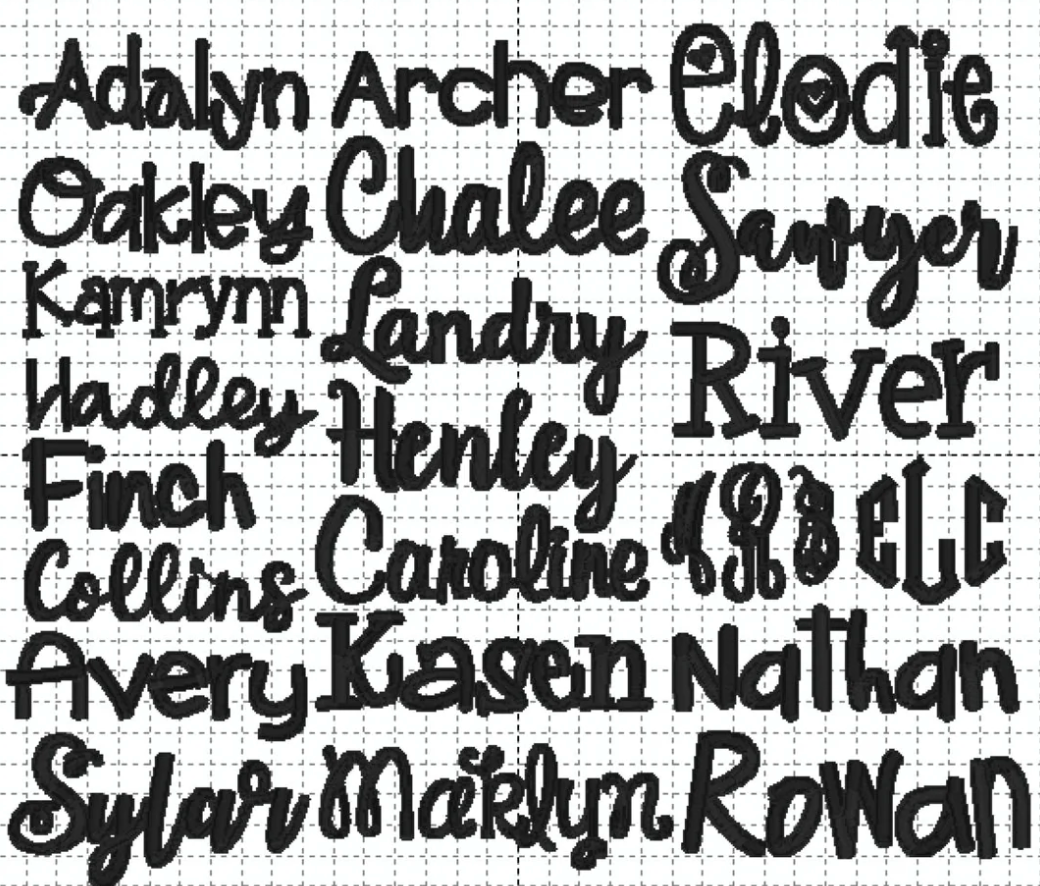 Adalyn
Oakley
Kamrynn
Hadley
Finch
Collins
Avery
Sylar
Archer
Chalee
Landry
Henley
Caroline
Kasen
Maiklyn
Elodie
Sawyer
River
ELC
Nathan
Rowan